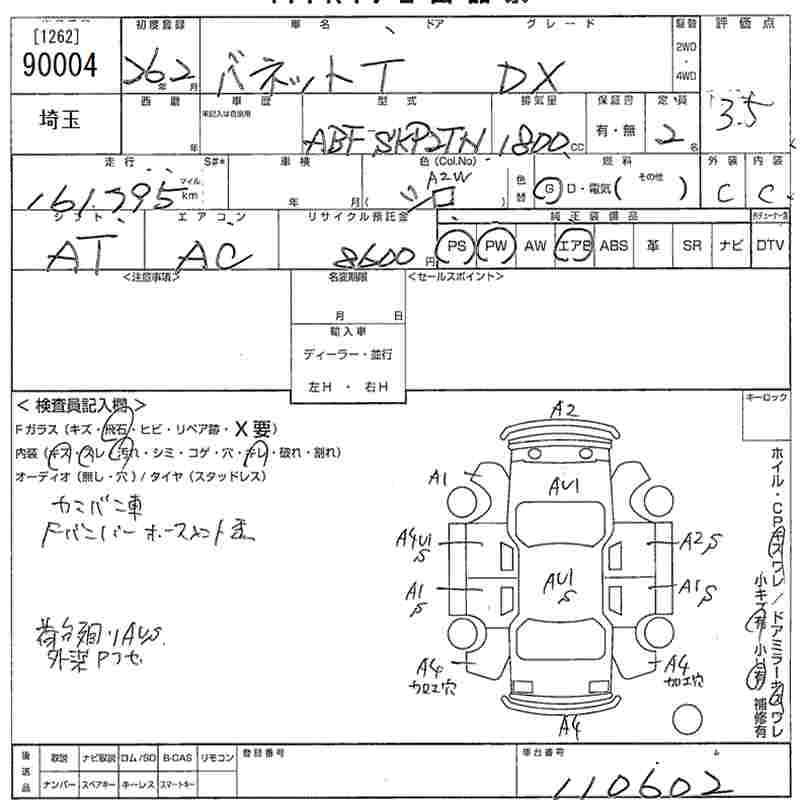 [1262]
90004
初度登録
26.2
年 月
車名
ドア
グレード
バネットT
DX
駆動
2WD
4WD
評価点
3.5
埼玉
西暦
年
車歴
未記入は自家用
型式
ABF SKP2TN
排気量
1800 CC
保証書
有・無
定員
2 名
走行
S#*
161,795
マイル
km
車検
年 月
色(Col.No)
A2W
色替
燃料
G D・電気( その他 )
外装
C
内装
C
シフト
AT
エアコン
AC
リサイクル預託金
8600 円
純正装備品
PS PW AW エアB ABS 革 SR ナビ DTV
<注意事項>
名変期限
月 日
<セールスポイント>
輸入車
ディーラー・並行
左H ・ 右H
<検査員記入欄>
Fガラス(キズ・飛石・ヒビ・リペア跡・X要)
内装(キズ・スレ・汚れ・シミ・コゲ・穴・キレ・破れ・割れ)
オーディオ(無し・穴)/タイヤ(スタッドレス)
キーロック
A2
A1
AU1
A4U1
S
A2 S
A1
S
AU1
S
A1 S
A4
加工穴
A4
加工穴
A4
ホイル・CPキズワレ/ドアミラーキズワレ
小キズ有 小凹有 補修有
後送品
取説 ナビ取説 ロム/SD B-CAS リモコン
ナンバー スペアキー キーレス スマートキー
登録番号
車台番号
110602